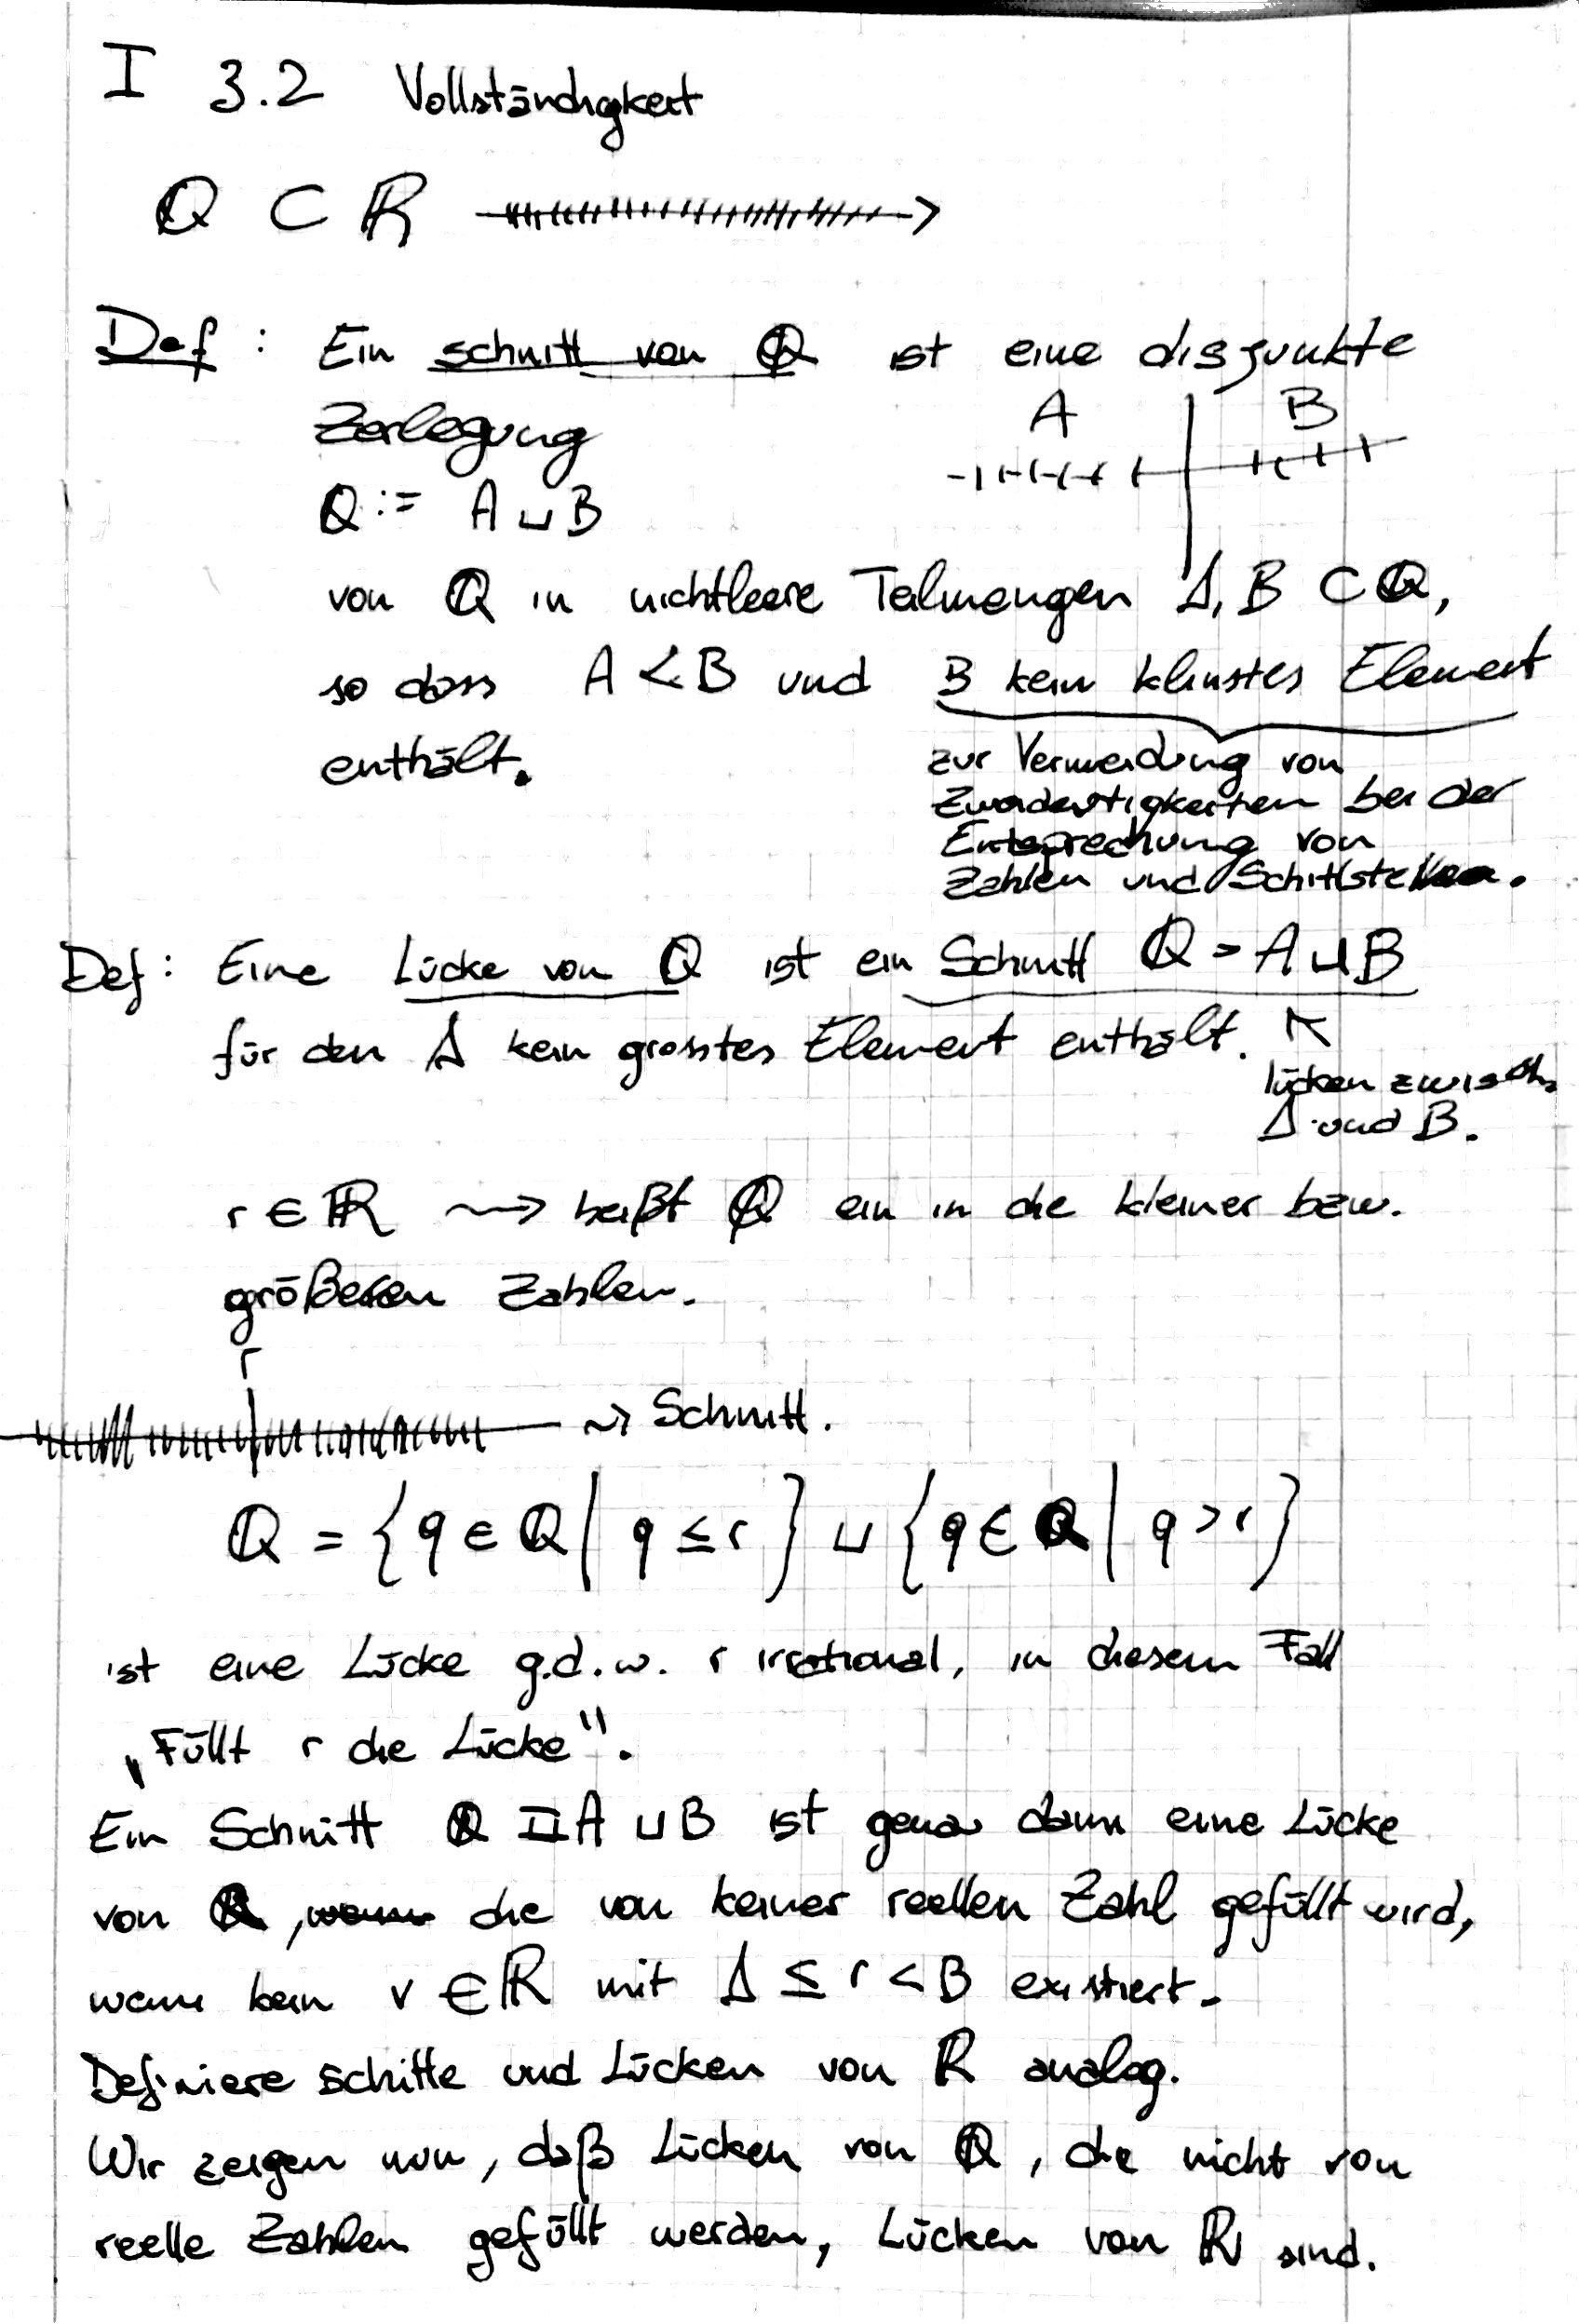 I 3.2 Vollständigkeit
ℚ ⊂ ℝ
Def: Ein schnitt von ℚ ist eine disjunkte
Zerlegung
A B
ℚ := A ⊔ B
von ℚ in nichtleere Teilmengen A, B ⊂ ℚ,
so dass A < B und B kein kleinstes Element
enthält.
zur Vermeidung von
Zweideutigkeiten bei der
Entsprechung von
Zahlen und Schittstellen.
Def: Eine Lücke von ℚ ist ein Schnitt ℚ = A ⊔ B
für den A kein grösstes Element enthält.
lücken zwisch.
A und B.
r ∈ ℝ ⇝ heißt ℚ ein in die kleiner bzw.
größeren Zahlen.
r
⇝ Schnitt.
ℚ = {q ∈ ℚ | q ≤ r} ⊔ {q ∈ ℚ | q > r}
ist eine Lücke g.d.w. r irrational, in diesem Fall
„Füllt r die Lücke".
Ein Schnitt ℚ = A ⊔ B ist genau dann eine Lücke
von ℚ, die von keiner reellen Zahl gefüllt wird,
wenn kein r ∈ ℝ mit A ≤ r < B existiert.
Definiere schitte und Lücken von ℝ analog.
Wir zeigen nun, daß Lücken von ℚ, die nicht von
reelle Zahlen gefüllt werden, Lücken von ℝ sind.